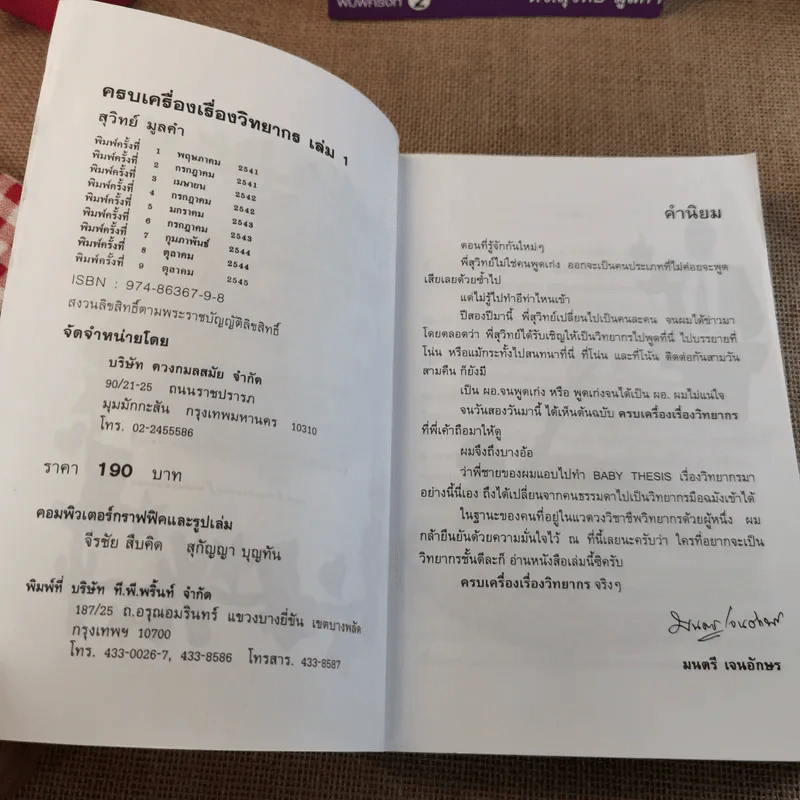 พิมพ์ครั้งที่ 2
ครบเครื่องเรื่องวิทยากร เล่ม 1
สุวิทย์ มูลคำ
พิมพ์ครั้งที่ 1 พฤษภาคม 2541
พิมพ์ครั้งที่ 2 กรกฎาคม 2541
พิมพ์ครั้งที่ 3 เมษายน 2542
พิมพ์ครั้งที่ 4 กรกฎาคม 2542
พิมพ์ครั้งที่ 5 มกราคม 2543
พิมพ์ครั้งที่ 6 กรกฎาคม 2543
พิมพ์ครั้งที่ 7 กุมภาพันธ์ 2544
พิมพ์ครั้งที่ 8 ตุลาคม 2544
พิมพ์ครั้งที่ 9 ตุลาคม 2545
ISBN : 974-86367-9-8
สงวนลิขสิทธิ์ตามพระราชบัญญัติลิขสิทธิ์
จัดจำหน่ายโดย
บริษัท ดวงกมลสมัย จำกัด
90/21-25 ถนนราชปรารภ
มุมมักกะสัน กรุงเทพมหานคร 10310
โทร. 02-2455586
ราคา 190 บาท
คอมพิวเตอร์กราฟฟิคและรูปเล่ม
จีรชัย สืบคิด สุกัญญา บุญทัน
พิมพ์ที่ บริษัท ที.พี.พริ้นท์ จำกัด
187/25 ถ.อรุณอมรินทร์ แขวงบางยี่ขัน เขตบางพลัด
กรุงเทพฯ 10700
โทร. 433-0026-7, 433-8586 โทรสาร. 433-8587
คำนิยม
ตอนที่รู้จักกันใหม่ๆ
พี่สุวิทย์ไม่ใช่คนพูดเก่ง ออกจะเป็นคนประเภทที่ไม่ค่อยจะพูด
เสียเลยด้วยซ้ำไป
แต่ไม่รู้ไปทำอีท่าไหนเข้า
ปีสองปีมานี้ พี่สุวิทย์เปลี่ยนไปเป็นคนละคน จนผมได้ข่าวมา
โดยตลอดว่า พี่สุวิทย์ได้รับเชิญให้เป็นวิทยากรไปพูดที่นี่ ไปบรรยายที่
โน่น หรือแม้กระทั่งไปสนทนาที่นี่ ที่โน่น และที่โน้น ติดต่อกันสามวัน
สามคืน ก็ยังมี
เป็น ผอ.จนพูดเก่ง หรือ พูดเก่งจนได้เป็น ผอ. ผมไม่แน่ใจ
จนวันสองวันมานี้ ได้เห็นต้นฉบับ ครบเครื่องเรื่องวิทยากร
ที่พี่เค้าถือมาให้ดู
ผมจึงถึงบางอ้อ
ว่าพี่ชายของผมแอบไปทำ BABY THESIS เรื่องวิทยากรมา
อย่างนี้นี่เอง ถึงได้เปลี่ยนจากคนธรรมดาไปเป็นวิทยากรมือฉมังเข้าได้
ในฐานะของคนที่อยู่ในแวดวงวิชาชีพวิทยากรด้วยผู้หนึ่ง ผม
กล้ายืนยันด้วยความมั่นใจไว้ ณ ที่นี้เลยนะครับว่า ใครที่อยากจะเป็น
วิทยากรชั้นดีละก็ อ่านหนังสือเล่มนี้ซิครับ
ครบเครื่องเรื่องวิทยากร จริงๆ
มนตรี เจนอักษร
มนตรี เจนอักษร